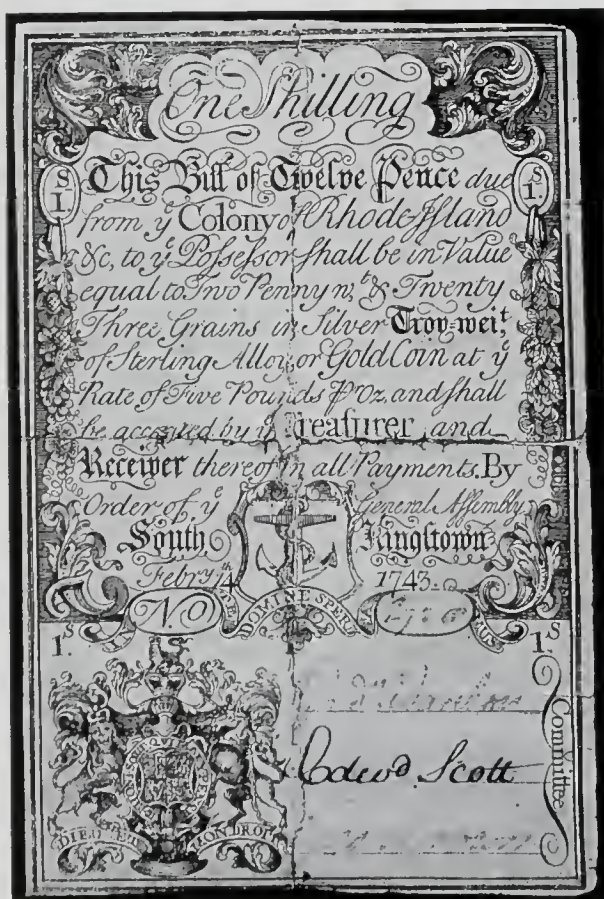 One Shilling
S
1.
S
1.
This Bill of Twelve Pence due
from yͤ Colony of Rhode-Island
&c, to yͤ Possessor shall be in Value
equal to Two Penny wͭ, & Twenty
Three Grains in Silver Troy=weiͭ.
of Sterling Alloy or Gold Coin at yͤ
Rate of Five Pounds ⅌ Oz, and shall
be accepted by yͤ Treasurer and
Receiver thereof in all Payments. By
Order of yͤ General Assembly
South Kingstown
Febry 14ᵗʰ 1743.
NO
DOMINE SPERA
1.ˢ 1.ˢ
DIEU MON DROIT
Edwᵈ Scott
Committee